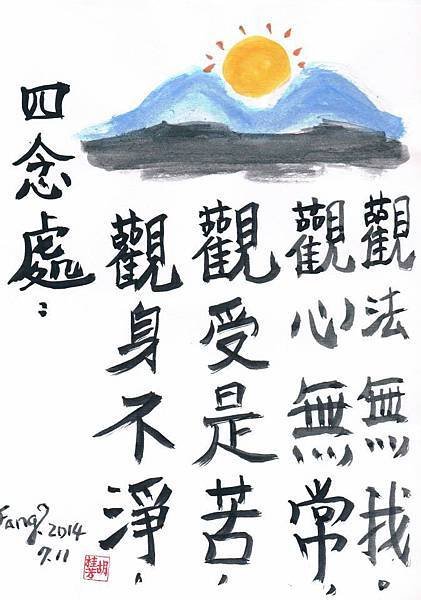 四念處：
觀身不淨，
觀受是苦，
觀心無常，
觀法無我.
Fang 2014
7.11
胡桂芳